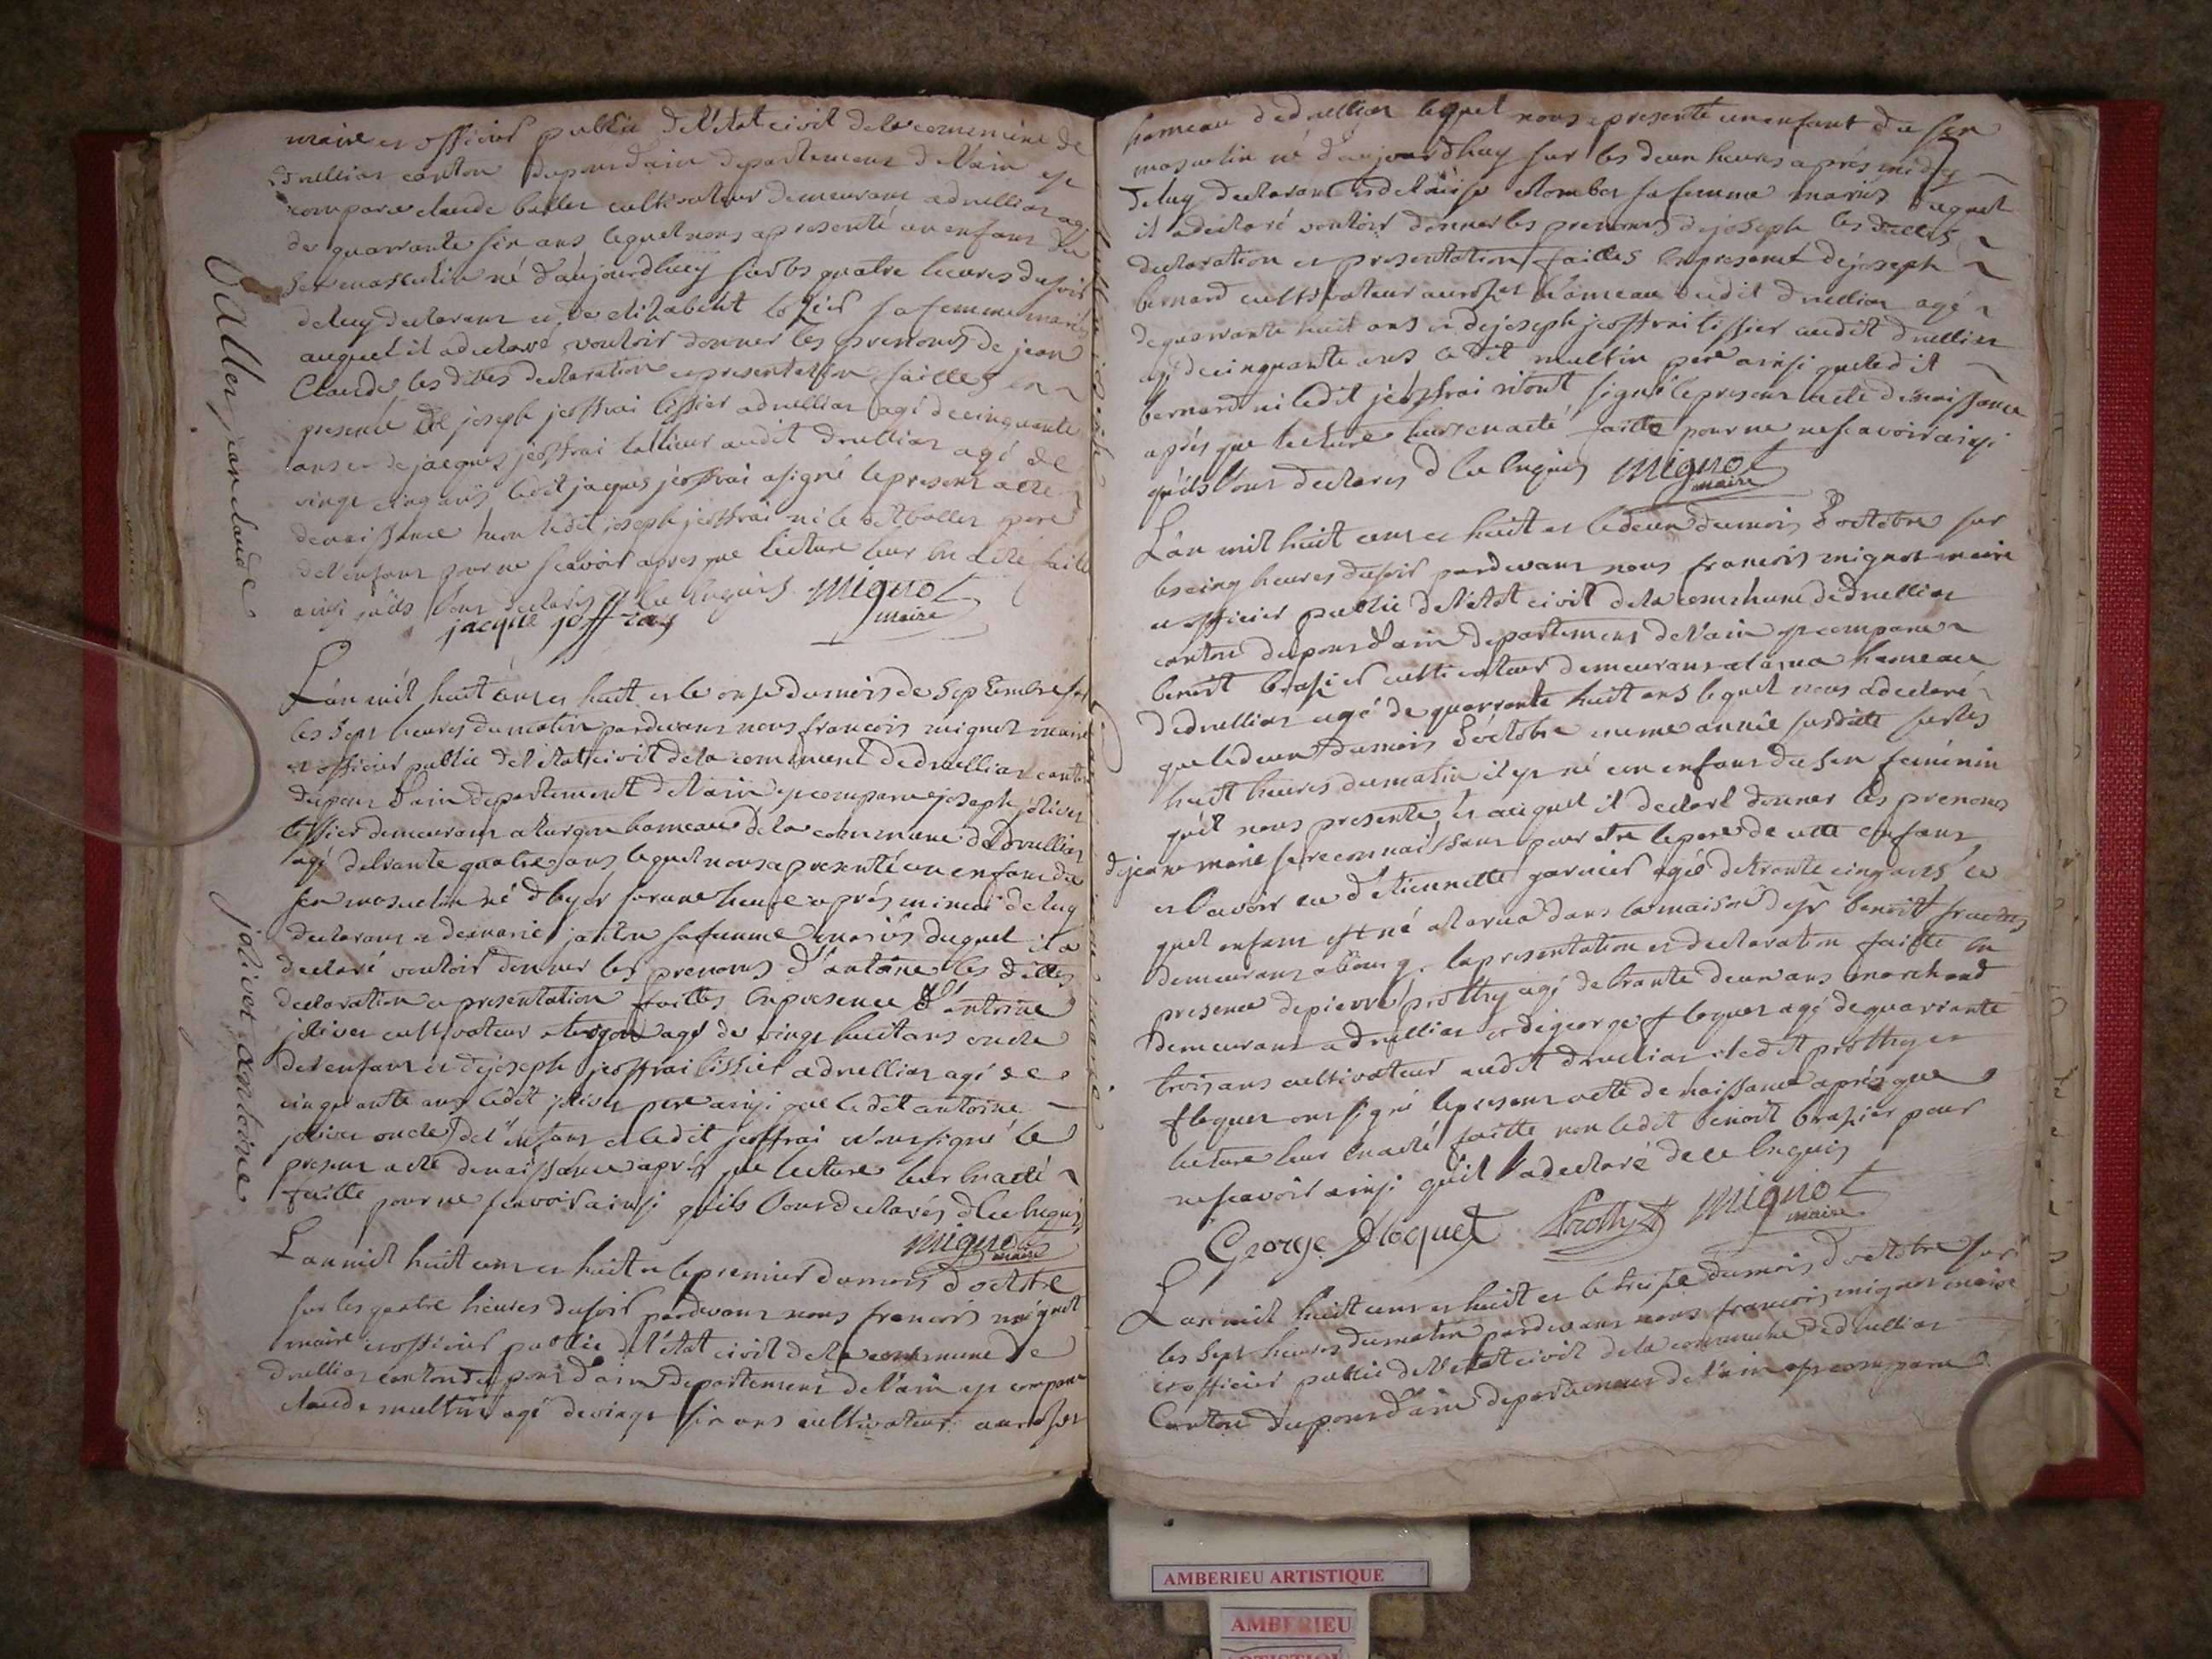 maire et officier public de l'état civil de la commune de
druillias canton du pont d'ain departement de l'ain est
comparu claude baller cultivateur demeurant a druillias agé
de quarrante six ans lequel nous a presenté un enfant du
sex masculin né d'aujourdhuy sur les quatre heures du soir
de luy declarant et de elizabeht sa femme mariés
auquel il a declaré vouloir donner les prenoms de jean
Claude les dittes declaration et presentation faittes en
presence de joseph jeoffrai tissier a druillias agé de cinquante
ans et de jacques jeoffrai tallieur audit druillias agé de
vingt cinq ans ledit jaques jeoffrai a signé le present acte
de naissance non ledit joseph jeoffrai ni le dit baller pere
de l'enfant pour ne scavoir apres que lecture leur en a été faitte
ainsi qu'ils l'ont declarés de ce enquis Mignot
jacque joffray maire
baller jean claude
L'an mil huit cent et huit et le onse du mois de septembre sur
les sept heures du matin pardevant nous francois mignot maire
et officier public de l'état civil de la commune de druillias canton
du pont d'ain departement de l'ain est comparu joseph jolivet
tissier demeurant a turgon hameau de la commune de druillias
agé de trante quatre ans lequel nous a presenté un enfant du
sex masculin né d'hyer sur une heure après minui de luy
declarant et de marie sa femme mariés duquel il a
declaré vouloir donner les prénoms d'antoine les dittes
declaration et presentation faittes en presence d'antoine
jolivet cultivateur a turgon agé de vingt huit ans oncle
de l'enfant et de joseph jeoffrai tissier a druillias agé de
cinquante ans ledit jolivet pere ainsi que le dit antoine
jolivet oncle de l'enfant et ledit jeoffrai n'ont signé le
present acte de naissance après que lecture leur en a été
faitte pour ne scavoir ainsi qu'ils l'ont declarés de ce enquis
Mignot
maire
jolivet antoine
L'an mil huit cent et huit et le premier du mois d'octobre
sur les quatre heures du soir pardevant nous francois mignot
maire et officier public de l'état civil de la commune de
druillias canton du pont d'ain departement de l'ain est comparu
claude multin agé de vingt six ans cultivateur au roset
hameau de druillias lequel nous a presenté un enfant du sex
masculin né d'aujourdhuy sur les deux heures après midy
de luy declarant et de sa femme mariés duquel
il a declaré vouloir donner les prenoms de joseph les dittes
declaration et presentation faittes en presence de joseph
bernard cultivateur au roset hameau dudit druillias agé
de quarrante huit ans et de joseph jeoffrai tissier audit druillias
agé de cinquante ans le dit multin pere ainsi que ledit
bernard ni ledit jeoffrai n'ont signé le present acte de naissance
après que lecture leur en a été faitte pour ne scavoir ainsi
qu'ils l'ont declarés de ce enquis Mignot
maire
L'an mil huit cent et huit et le deux du mois d'octobre sur
les cinq heures du soir pardevant nous francois mignot maire
et officier public de l'état civil de la commune de druillias
canton du pont d'ain departement de l'ain est comparu
benoit brasier cultivateur demeurant a hameau
de druillias agé de quarrante huit ans lequel nous a declaré
que le deux du mois d'octobre meme année susditte sur les
huit heures du matin il est né un enfant du sex feminin
qu'il nous presente et auquel il declare donner les prenoms
de jeanne marie se reconnaissant pour etre le pere de cette enfant
et l'avoir eu d'etiennette garnier agée de trante cinq ans le
quel enfant est né a dans la maison de sr benoit
demeurant a bourg. la presentation et declaration faitte en
presence de pierre prothy agé de trante deux ans marchand
demeurant a druillias et de george floquet agé de quarrante
trois ans cultivateur audit druillias ledit prothy et
floquet ont signé le present acte de naissance après que
lecture leur en a été faitte non ledit benoit brasier pour
ne scavoir ainsi qu'il l'a declaré de ce enquis
George floquet Prothy Mignot
maire
L'an mil huit cent et huit et le treise du mois d'octobre sur
les sept heures du matin pardevant nous francois mignot maire
et officier public de l'état civil de la commune de druillias
Canton du pont d'ain departement de l'ain est comparu
AMBERIEU ARTISTIQUE
AMBERIEU
ARTISTIQUE